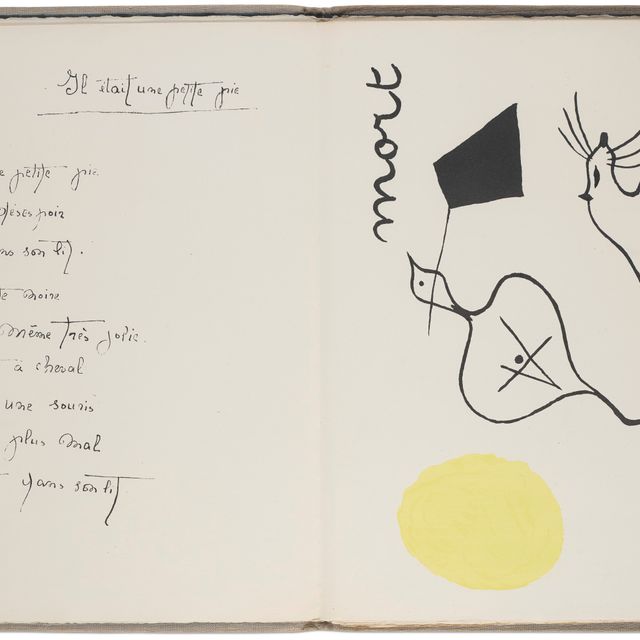 Il était une petite pie
petite pie
désespoir
son lit.
noire
même très jolie.
à cheval
une souris
plus mal
dans son lit
mort